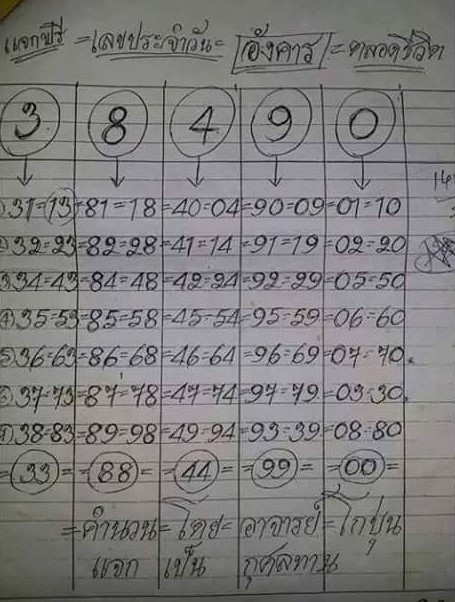 แจกฟรี = เลขประจำวัน = อังคาร = ตลอดชีวิต
3 8 4 9 0
31=13=81=18=40=04=90=09=01=10
32=23=82=28=41=14=91=19=02=20
34=43=84=48=42=24=92=29=05=50
35=53=85=58=45=54=95=59=06=60
36=63=86=68=46=64=96=69=07=70
37=73=87=78=47=74=97=79=03=30
38=83=89=98=49=94=93=39=08=80
=33= =88= =44= =99= =00=
=คำนวน=โดย=อาจารย์=โกปุน
แจก เป็น กุศลทาน